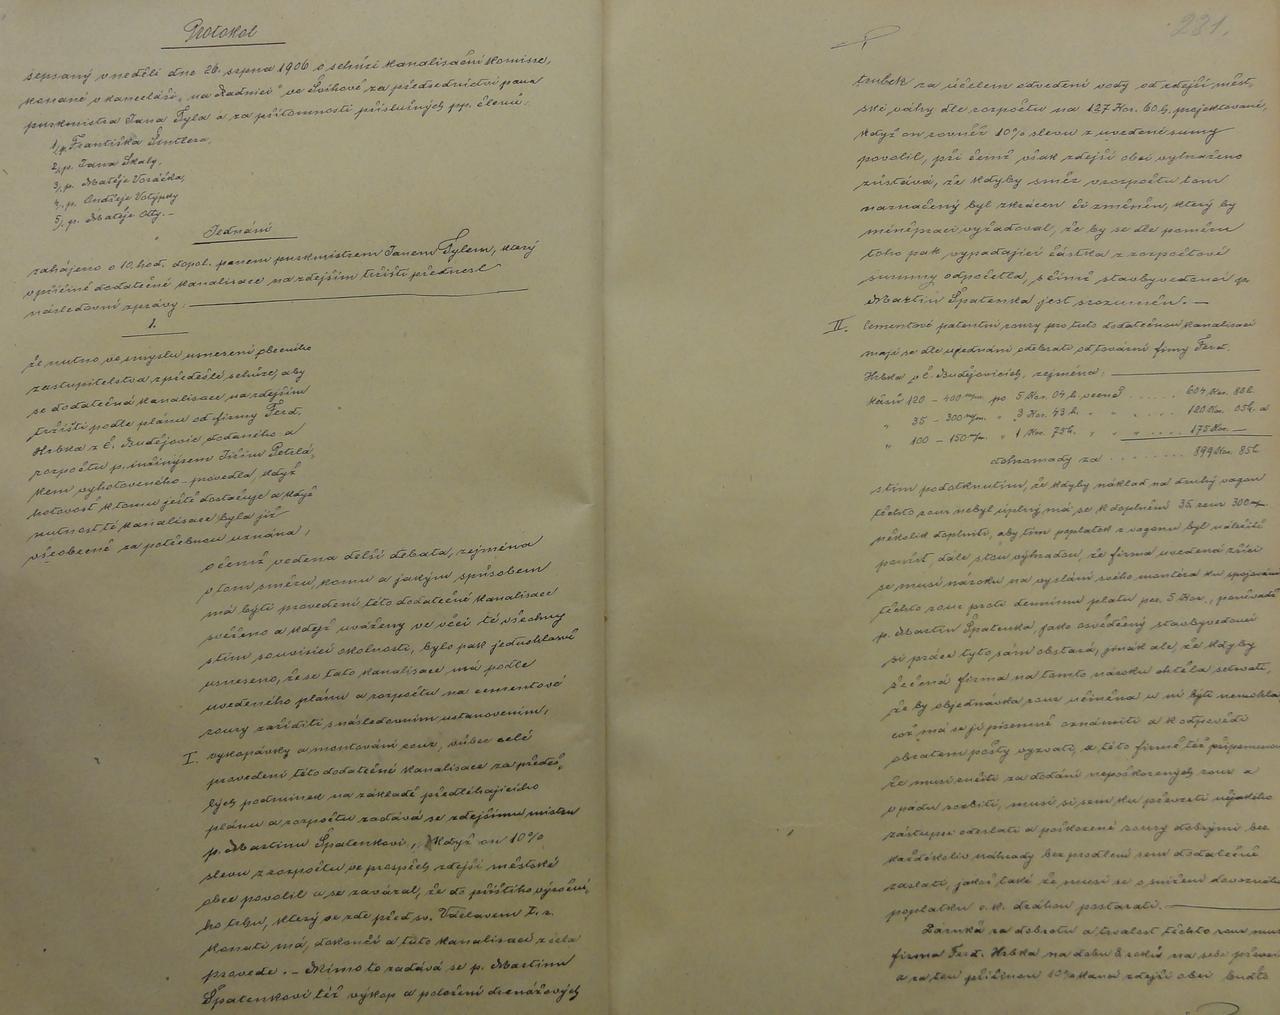 Protokol
sepsaný v neděli dne 26. srpna 1906 o schůzi kanalisační komisse,
konané v kanceláři „na Radnici" ve Švihově za předsednictví pana
purkmistra Jana Tyla a za přítomnosti příslušných pp. členů:
1/ p. Františka Šintlera,
2/ p. Jana Skaly,
3/ p. Matěje Voráčka,
4/ p. Ondřeje Votýpky
5/ p. Matěje Oty. –
Jednání
zahájeno o 10. hod. dopol. panem purkmistrem Janem Tylem, který
v příčině dodatečné kanalisace na zdejším tržišti přednesl
následovní zprávy:
1.
že nutno ve smyslu usnesení obecního
zastupitelstva z předešlé schůze, aby
se dodatečná kanalisace na zdejším
tržišti podle plánu od firmy Ferd.
Hrbka z Č. Budějovic dodaného a
rozpočtu p. inžinýrem Jiřím
vyhotoveného – provedla, když
hotovost k tomu ještě dostačuje a když
nutnost té kanalisace byla již
všeobecně za potřebnou uznána,
o čemž vedena delší debata, zejména
v tom směru, komu a jakým spůsobem
má býti provedení této dodatečné kanalisace
svěřeno a když uváženy ve věci té všechny
s tím souvisící okolnosti, bylo pak jednohlasně
usneseno, že se tato kanalisace má podle
uvedeného plánu a rozpočtu na cementové
roury zaříditi s následovním ustanovením:
I. vykopávky a montování rour, vůbec celé
provedení této dodatečné kanalisace za předeš-
lých podmínek na základě předléhajícího
plánu a rozpočtu zadává se zdejšímu mistru
p. Martinu Špatenkovi, když on 10%
slevu z rozpočtu ve prospěch zdejší městské
obce povolil a se zavázal, že do příštího výroční-
ho trhu, který se zde před sv. Václavem t. r.
konati má, dokončí a tuto kanalisaci zcela
provede. – Mimo to zadává se p. Martinu
Špatenkovi též výkop a položení drenážových
281.
trubek za účelem odvedení vody od zdejší měst-
ské váhy dle rozpočtu na 127 Kor. 60 h. projektované,
když on rovněž 10% slevu z uvedené sumy
povolil, při čemž však zdejší obci vyhraženo
zůstává, že kdyby směr v rozpočtu tom
naznačený byl zkrácen či změněn, který by
méně prací vyžadoval, že by se dle poměru
toho pak vypadající částka z rozpočtové
summy odpočetla, s čímž stavbyvedoucí p.
Martin Špatenka jest srozuměn. –
II. Cementové patentní roury pro tuto dodatečnou kanalisaci
mají se dle ujednání odebrati od tovární firmy Ferd.
Hrbka v Č. Budějovicích, zejména:
kusů 120 – 400 m/m. po 5 Kor. 04 h. v ceně ..... 604 Kor. 80 h.
" 35 – 300 m/m. " 3 Kor. 43 h. " " ..... 120 Kor. 05 h. a
" 100 – 150 m/m. " 1 Kor. 75 h. " " ..... 175 Kor. —
dohromady za ........ 899 Kor. 85 h.
s tím podotknutím, že kdyby náklad na druhý vagon
těchto rour nebyl úplný, má se k doplnění 35 rour 300 m/m
několik doplniti, aby tím poplatek z vagonu byl náležitě
použit, dále s tou výhradou, že firma uvedená zříci
se musí nároku na vyslání svého montéra ku spojování
těchto rour proti dennímu platu per. 5 Kor., poněvadž
p. Martin Špatenka, jako osvědčený stavbyvedoucí
si práce tyto sám obstará, jinak ale, že kdyby
řečená firma na tomto nároku chtěla setrvati,
že by objednávka rour učiněna u ní býti nemohla
což má se jí písemně oznámiti a k odpovědi
obratem pošty vyzvati, a této firmě též připomenouti
že musí ručiti za dodání nepoškozených rour a
v pádu rozbití, musí si sem ku převzetí nějakého
zástupce odeslati a poškozené roury dobrými bez
kteréhokoliv náhrady bez prodlení sem dodatečně
zaslati, jakož také že musí se o snížení dovozního
poplatku c. k. drahou postarati. –
Záruku za dobrotu a trvalost těchto rour musí
firma Ferd. Hrbka na dobu 3 roků na sebe převzíti
a za tou příčinou 10% kauci zdejší obci buďto